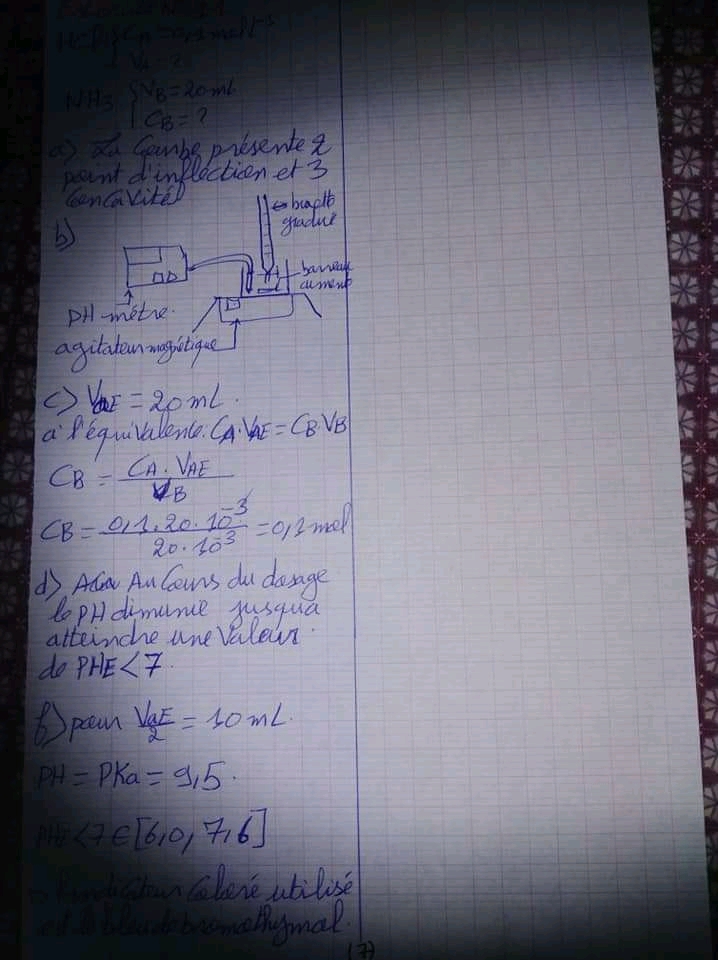 Exercice N° 11
CA = 0,1 mol.l⁻¹
VA = ?
NH3 { VB = 20mL
CB = ?
a) La Courbe présente 2
point d'inflection et 3
Concavité
b)
burette
gradué
barreau
aimenté
PH-mètre.
agitateur magnétique
c) VAE = 20 mL.
à l'équivalente. CA.VAE = CB.VB
CB = CA . VAE / VB
CB = 0,1.20.10⁻³ / 20.10⁻³ = 0,1mol
d) Au Cours du dosage
le PH dimunie jusqu'a
atteindre une Valeur
de PHE < 7.
f) pour VaE/2 = 10 mL.
PH = PKa = 9,5.
PHE < 7 ∈ [6,0, 7,6]
l'indicateur Coloré utilisé
est le bleu de bromothymol.
(7)